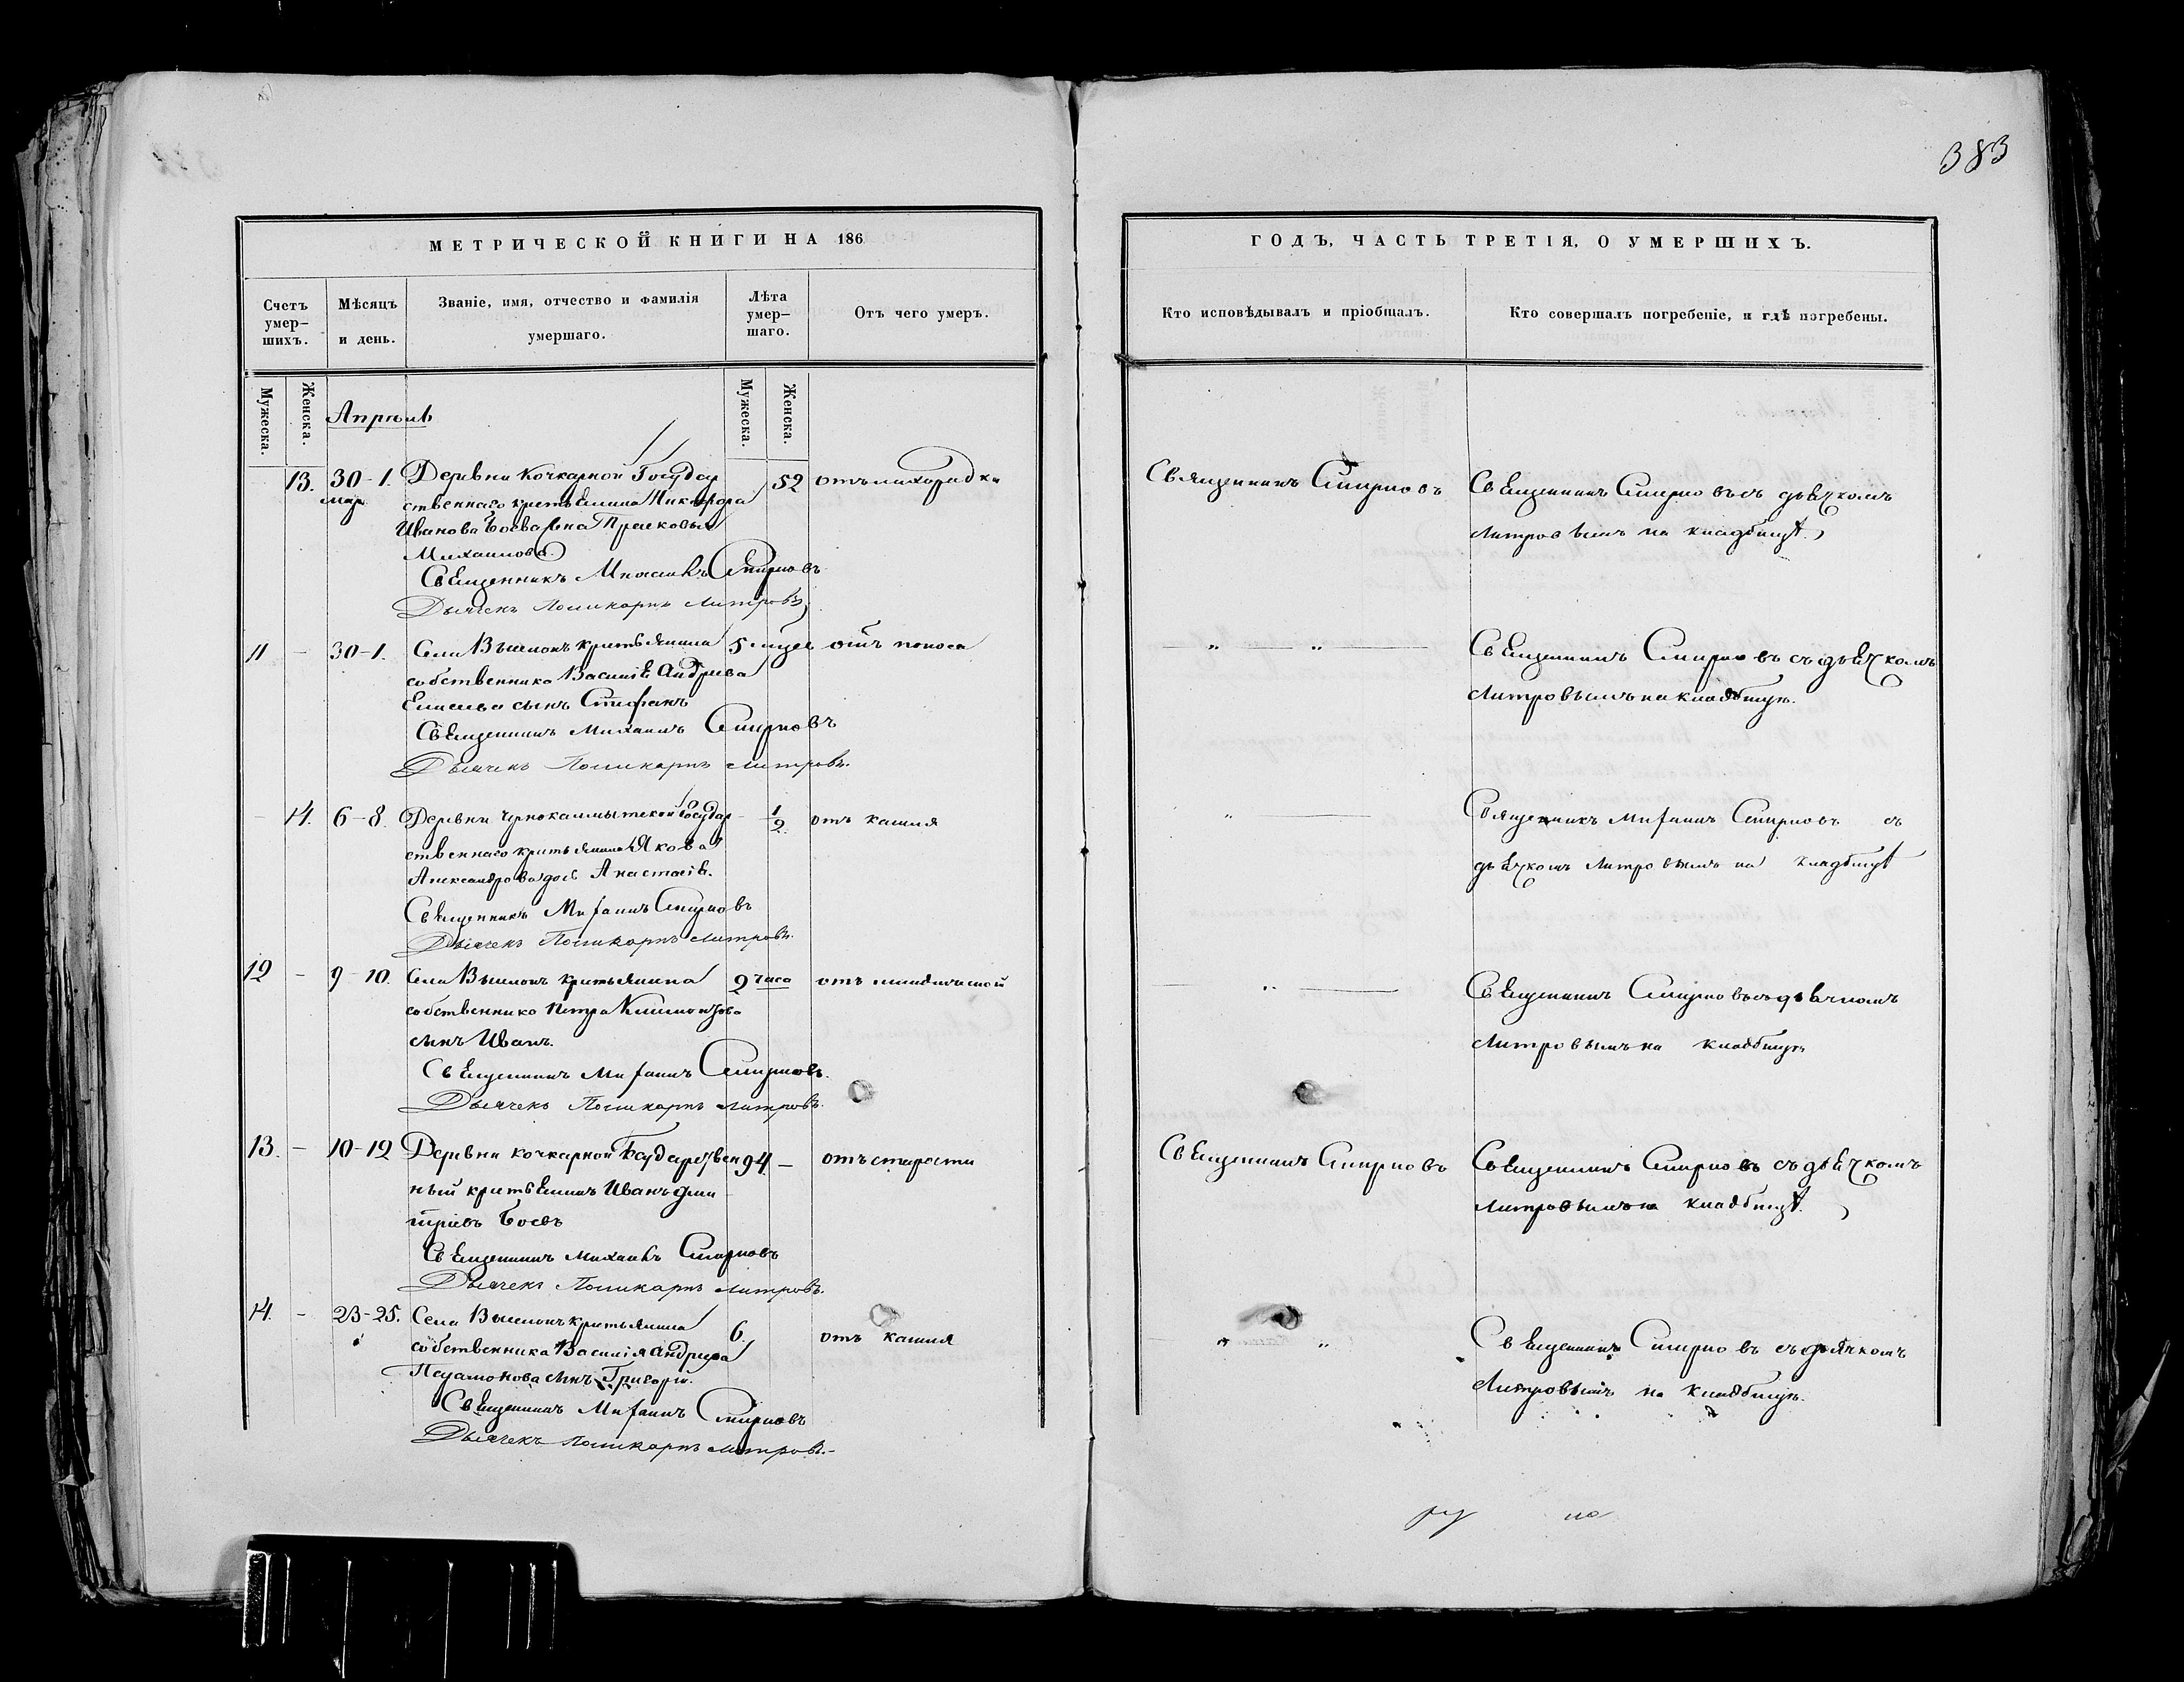 383
МЕТРИЧЕСКОЙ КНИГИ НА 186
Счетъ умер-шихъ.
Мѣсяцъ и день.
Званіе, имя, отчество и фамилія умершаго.
Лѣта умер-шаго.
Отъ чего умеръ.
Мужеска.
Женска.
Мужеска.
Женска.
Апрѣль
13. 30-1. Деревни Кочкарной Государ 52 отъ лихорадки
мар. ственнаго крестьянина Никифора
Иванова Боева жена Прасковья
Михаилова.
Священникъ Михаилъ Смирновъ
Дьячекъ Поликарпъ Литровъ
11 - 30-1. Села крестьянина 5 отъ поноса
собственника Василія Андреева
сынъ Стефанъ
Священникъ Михаилъ Смирновъ
Дьячекъ Поликарпъ Литровъ.
- 14. 6-8. Деревни Государ - 1/2. отъ кашля
ственнаго крестьянина Якова
Александрова дочь Анастасія.
Священникъ Михаилъ Смирновъ
Дьячекъ Поликарпъ Литровъ.
12 - 9-10. Села крестьянина 2 часа отъ
собственника Петра
сынъ Иванъ.
Священникъ Михаилъ Смирновъ.
Дьячекъ Поликарпъ Литровъ.
13. - 10-12 Деревни Кочкарной Государствен 94 - отъ старости
ный крестьянинъ Иванъ Дми
тріевъ Боевъ
Священникъ Михаилъ Смирновъ
Дьячекъ Поликарпъ Литровъ.
14. - 23-25. Села крестьянина 6. отъ кашля
собственника Василія Андреева
сынъ Григорій.
Священникъ Михаилъ Смирновъ
Дьячекъ Поликарпъ Литровъ.-
ГОДЪ, ЧАСТЬ ТРЕТІЯ, О УМЕРШИХЪ.
Кто исповѣдывалъ и пріобщалъ.
Кто совершалъ погребеніе, и гдѣ погребены.
Священникъ Смирновъ Священникъ Смирновъ съ дьячкомъ
Литровымъ на кладбищѣ.
„ „ Священникъ Смирновъ съ дьячкомъ
Литровымъ на кладбищѣ.
„ Священникъ Михаилъ Смирновъ съ
дьячкомъ Литровымъ на кладбищѣ
„ Священникъ Смирновъ съ дьячкомъ
Литровымъ на кладбищѣ
Священникъ Смирновъ Священникъ Смирновъ съ дьячкомъ
Литровымъ на кладбищѣ.
„ „ Священникъ Смирновъ съ дьячкомъ
Литровымъ на кладбищѣ.